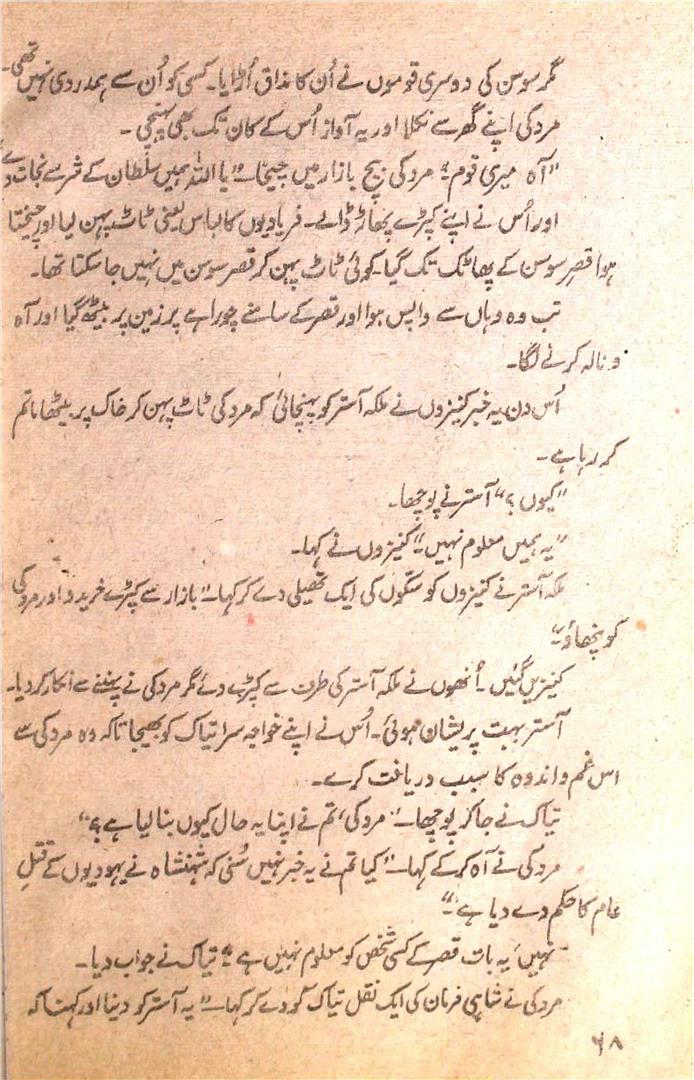 مگر سوسن کی دوسری قوموں نے اُن کا مذاق اُڑایا۔ کسی کو اُن سے ہمدردی نہیں تھی۔
مردکی اپنے گھر سے نکلا اور یہ آواز اُس کے کان تک بھی پہنچی۔
"آہ میری قوم" مردکی بیچ بازار میں چیخا۔ "یا اللہ ہمیں سلطان کے شر سے نجات دے"
اور اُس نے اپنے کپڑے پھاڑ ڈالے۔ فریادیوں کا لباس یعنی ٹاٹ پہن لیا اور چیختا
ہوا قصرِ سوسن کے پھاٹک تک گیا۔ کوئی ٹاٹ پہن کر قصر سوسن میں نہیں جا سکتا تھا۔
تب وہ وہاں سے واپس ہوا اور قصر کے سامنے چوراہے پر زمین پر بیٹھ گیا اور آہ
و نالہ کرنے لگا۔
اُس دن یہ خبر کنیزوں نے ملکہ آستر کو پہنچائی کہ مردکی ٹاٹ پہن کر خاک پر بیٹھا ماتم
کر رہا ہے۔
"کیوں؟" آستر نے پوچھا۔
"یہ ہمیں معلوم نہیں۔" کنیزوں نے کہا۔
ملکہ آستر نے کنیزوں کو سکّوں کی ایک تھیلی دے کر کہا۔ "بازار سے کپڑے خریدو اور مردکی
کو پہنچاؤ۔"
کنیزیں گئیں۔ اُنھوں نے ملکہ آستر کی طرف سے کپڑے دئے مگر مردکی نے پہننے سے انکار کر دیا۔
آستر بہت پریشان ہوئی۔ اُس نے اپنے خواجہ سرا تیاک کو بھیجا تاکہ وہ مردکی سے
اس غم و اندوہ کا سبب دریافت کرے۔
تیاک نے جا کر پوچھا۔ "مردکی، تم نے اپنا یہ حال کیوں بنا لیا ہے؟"
مردکی نے آہ کر کے کہا۔ "کیا تم نے یہ خبر نہیں سُنی کہ شہنشاہ نے یہودیوں کے قتلِ
عام کا حکم دے دیا ہے۔"
"نہیں، یہ بات قصر کے کسی شخص کو معلوم نہیں ہے" تیاک نے جواب دیا۔
مردکی نے شاہی فرمان کی ایک نقل تیاک کو دے کر کہا۔ "یہ آستر کو دینا اور کہنا کہ
۶۸